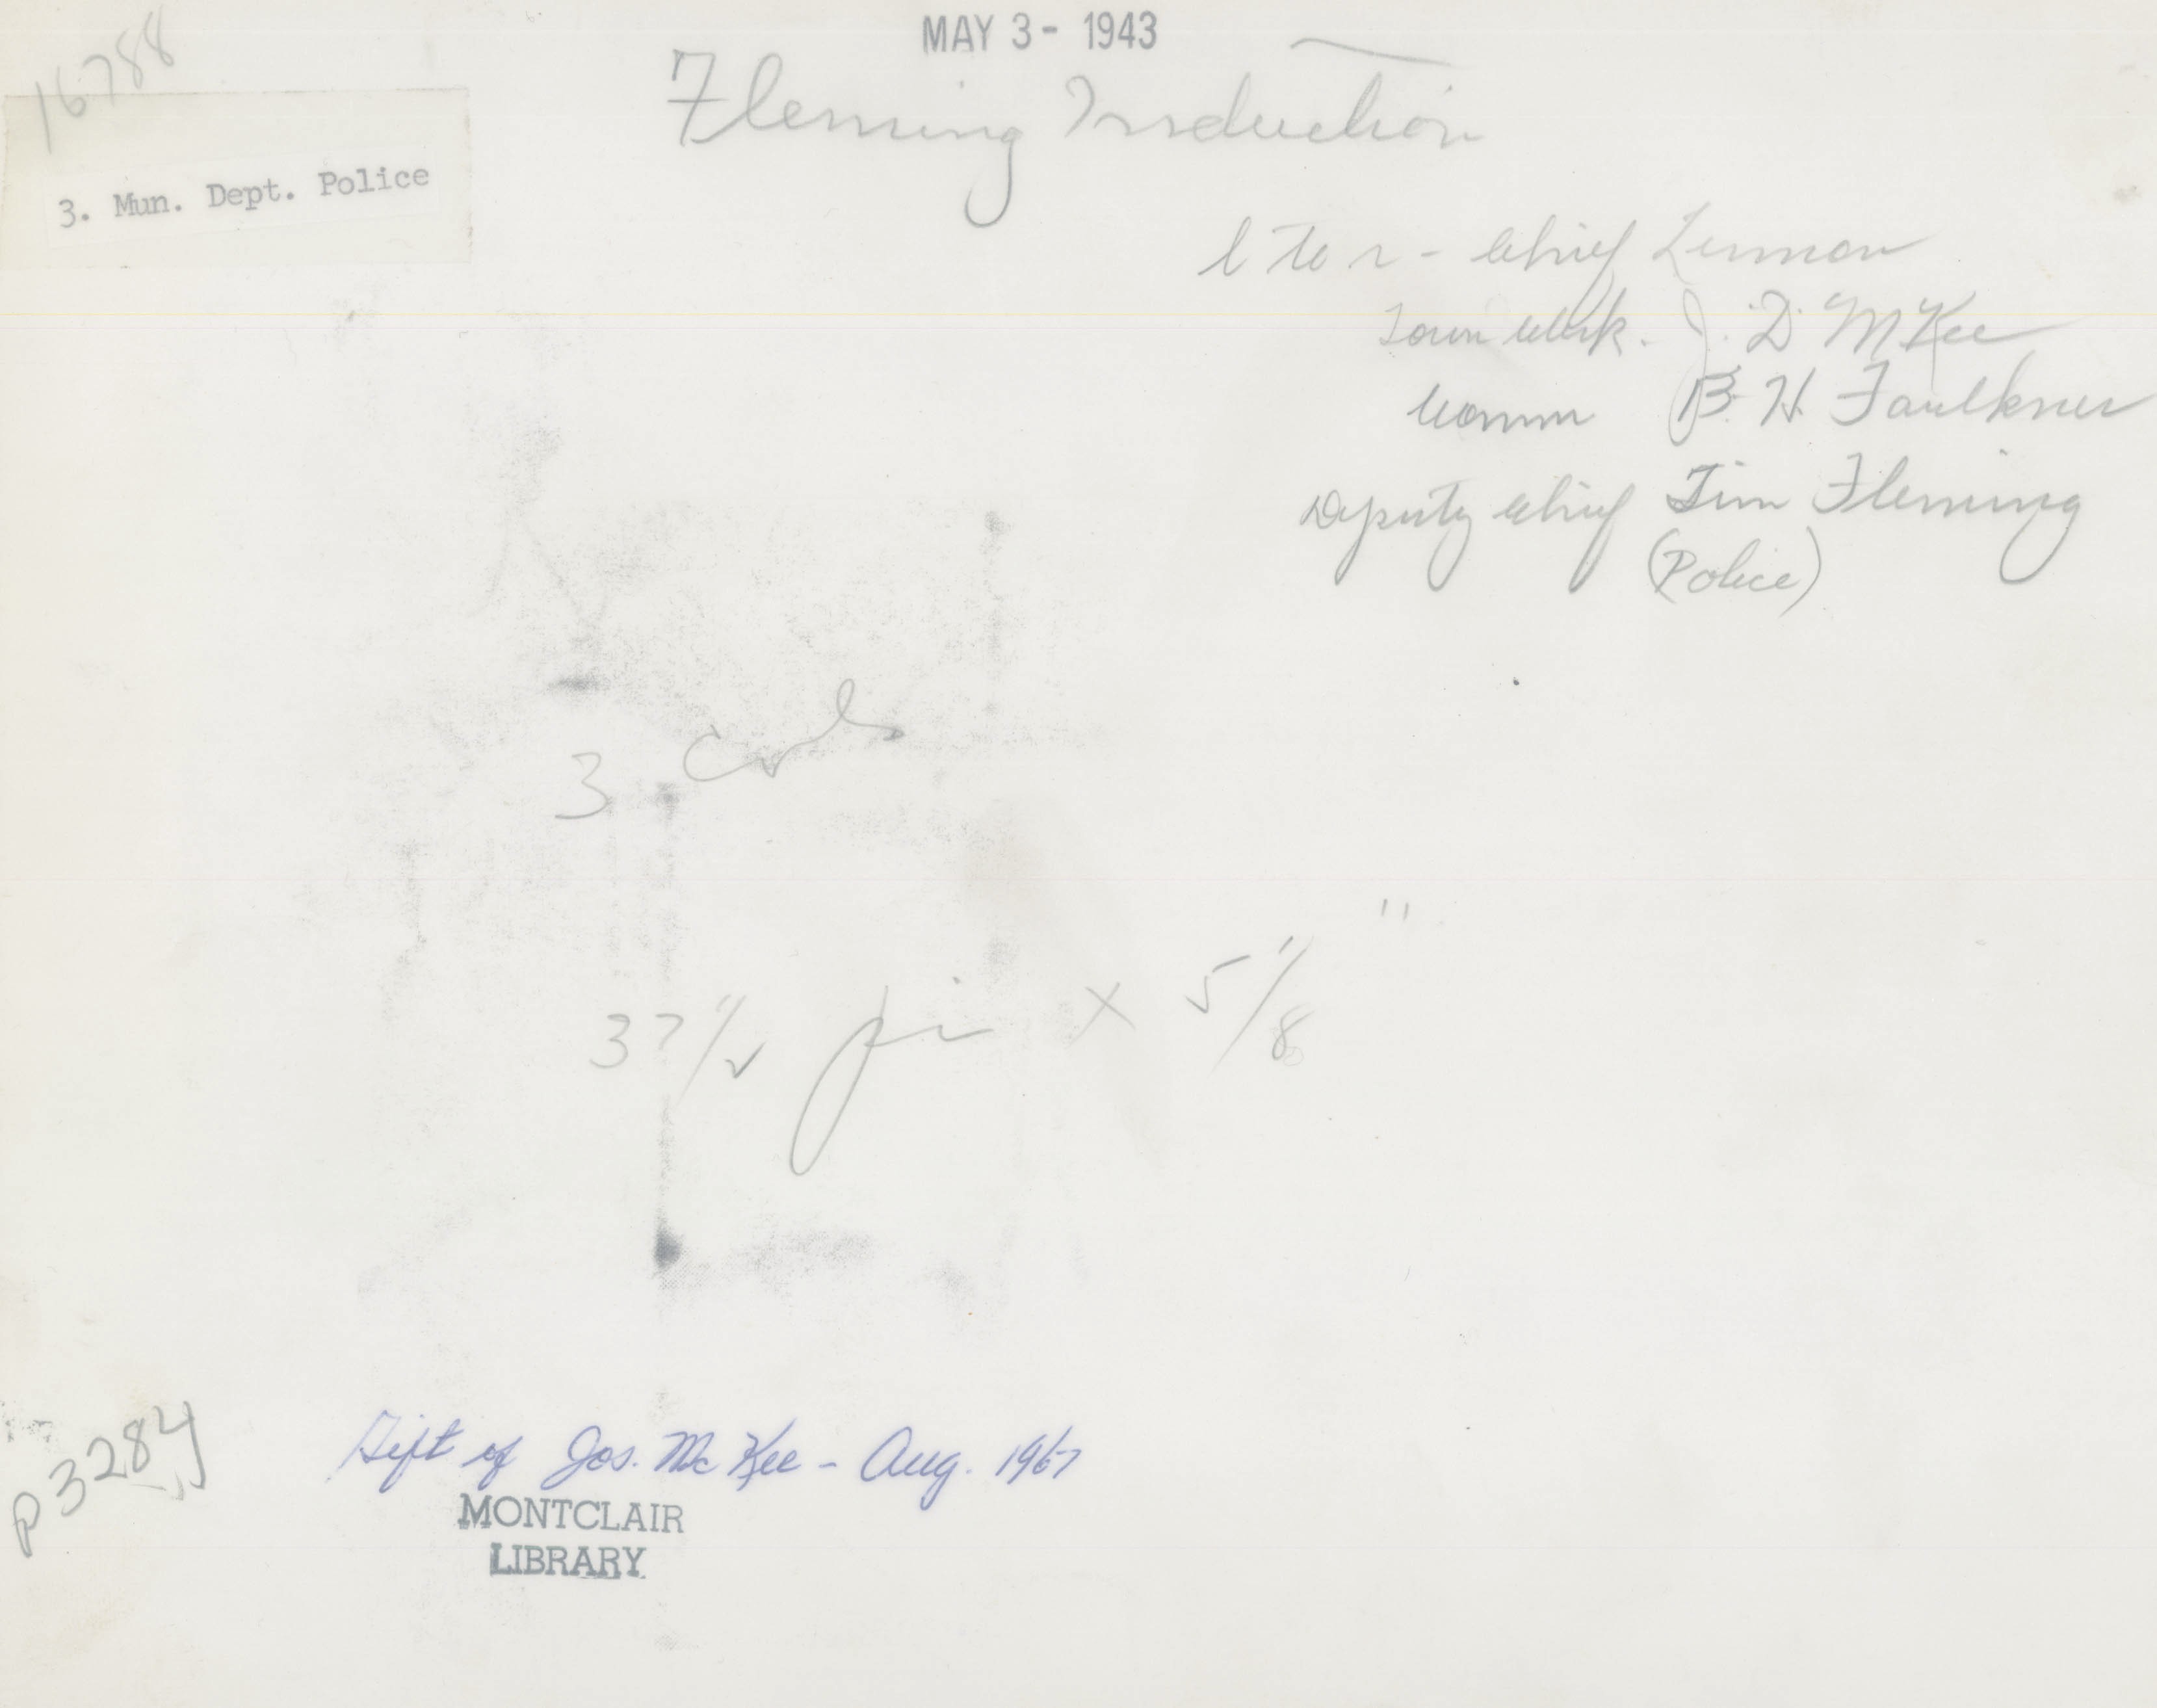 MAY 3 - 1943
16788
Fleming Induction
3. Mun. Dept. Police
l to r - Chief Lermon
Town Clerk. J. D. McKee
Comm B. H. Faulkner
Deputy Chief Tim Fleming
(Police)
3 cols
37 1/2 pi x 5 1/8 "
p3284
Gift of Jos. McKee - Aug. 1967
MONTCLAIR
LIBRARY